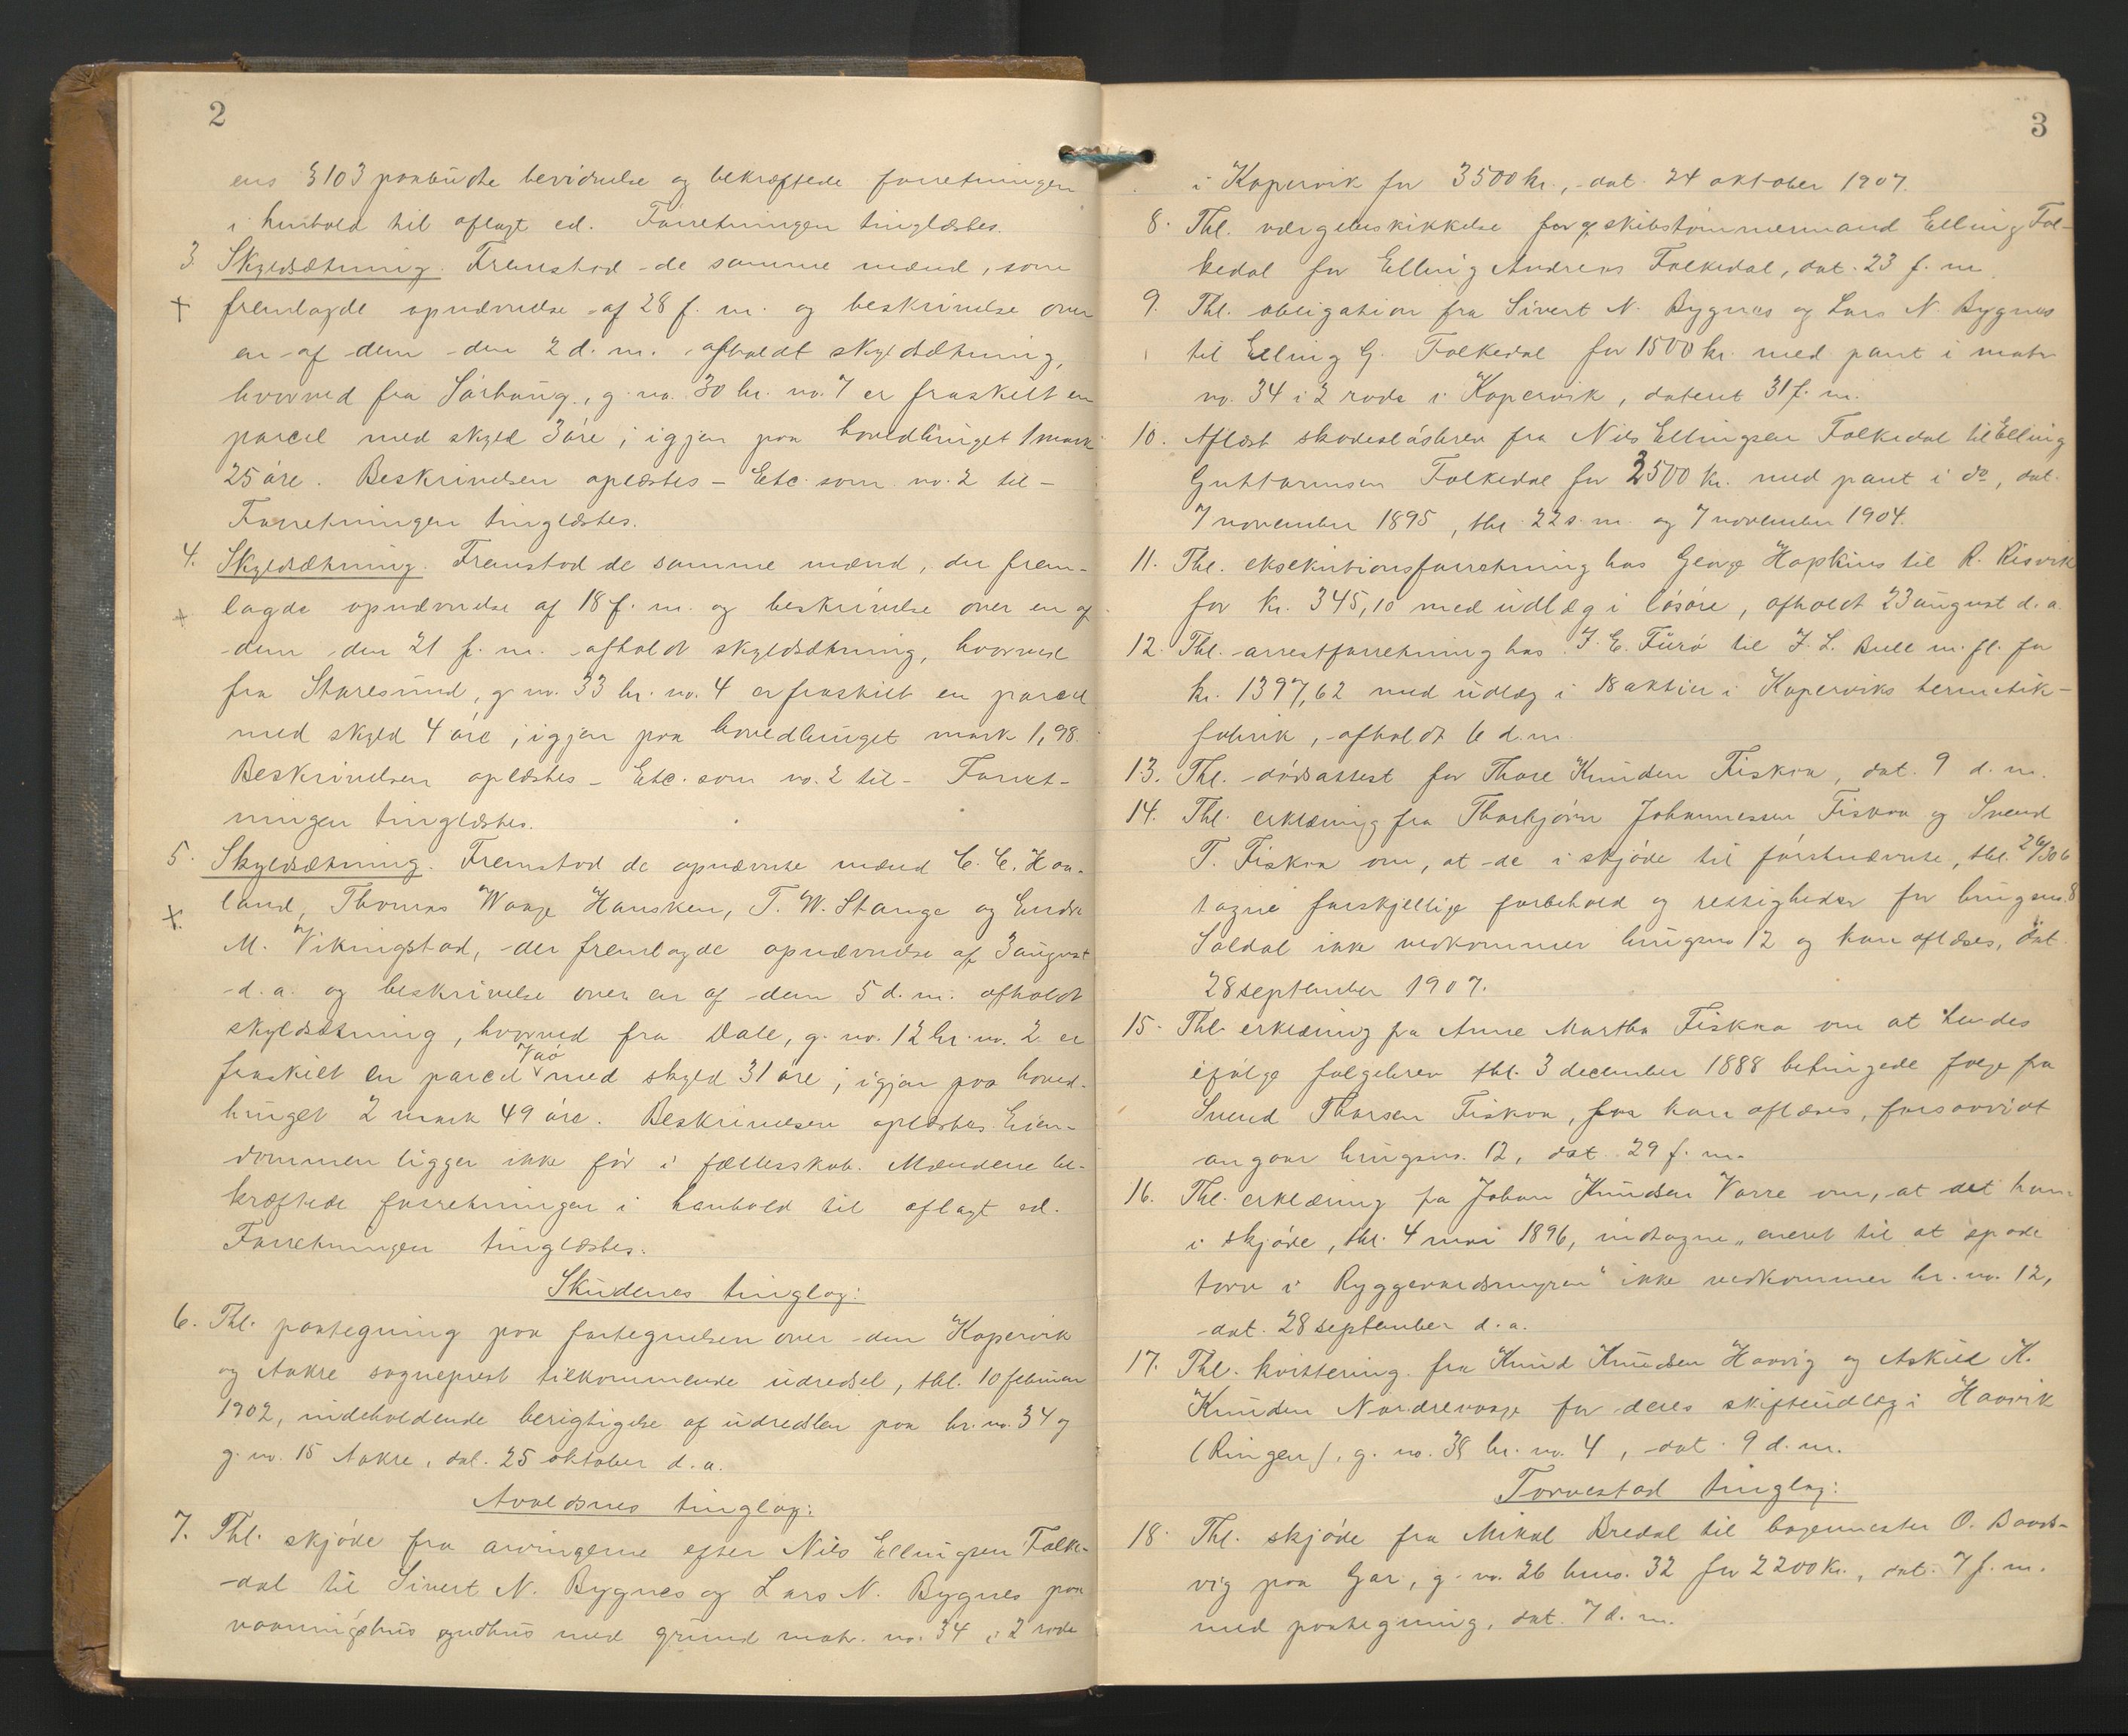 2
ens § 103 paabudte bevidnelse og bekræftede forretningen
i henhold til aflagt ed. Forretningen tinglæstes.
3. Skyldsætning. Fremstod de samme mænd, som
+ fremlagde opnævnelse af 28 f. m. og beskrivelse over
en af dem den 2 d. m. afholdt skyldsætning,
hvorved fra Sørhaug, g. no. 30 br. no. 7 er fraskilt en
parcel med skyld 3 øre; igjen paa hovedbruget 1 mark
25 øre. Beskrivelsen oplæstes - Etc. som no. 2 til -
Forretningen tinglæstes.
4. Skyldsætning. Fremstod de samme mænd, der frem-
+ lagde opnævnelse af 18 f. m. og beskrivelse over en af
dem den 21 f. m. afholdt skyldsætning, hvorved
fra Storesund, g. no. 33 br. no. 4 er fraskilt en parcel
med skyld 4 øre; igjen paa hovedbruget mark 1,98.
Beskrivelsen oplæstes - Etc. som no. 2 til - Forret-
ningen tinglæstes.
5. Skyldsætning. Fremstod de opnævnte mænd C. C. Haa-
+ land, Thomas Waage Hansken, T. W. Stange og Endre
M. Vikingstad, der fremlagde opnævnelse af 3 august
d. a. og beskrivelse over en af dem 5 d. m. afholdt
skyldsætning, hvorved fra Dale, g. no. 12 br. no. 2 er
fraskilt en parcel Vaø med skyld 31 øre; igjen paa hoved-
bruget 2 mark 49 øre. Beskrivelsen oplæstes. Eien-
dommen ligger ikke før i fællesskab. Mændene be-
kræftede forretningen i henhold til aflagt ed.
Forretningen tinglæstes.
Skudenes tinglag:
6. Thl. paategning paa fortegnelsen over den Kopervik
og Aakre sogneprest tilkommende udredsel, thl. 10 februar
1902, indeholdende berigtigelse af udredslen paa br. no. 34 og
g. no. 15 Aakre, dat. 25 oktober d. a.
Avaldsnes tinglag:
7. Thl. skjøde fra arvingerne efter Nils Ellingsen Falke-
dal til Sivert N. Bygnes og Lars N. Bygnes paa
vaaningshus og udhus med grund matr. no. 34 i 2 rode
3
i Kopervik for 3500 kr., dat. 24 oktober 1907.
8. Thl. værgebeskikkelse for skibstømmermand Elling Fol-
kedal for Elling Andreas Folkedal, dat. 23 f. m.
9. Thl. obligation fra Sivert N. Bygnes og Lars N. Bygnes
til Elling G. Folkedal for 1500 kr. med pant i matr.
no. 34 i 2 rode i Kopervik, dateret 31 f. m.
10. Aflæst skadesløsbrev fra Nils Ellingsen Folkedal til Elling
Guttormsen Folkedal for 2500 kr. med pant i do, dat.
7 november 1895, thl. 22 s. m. og 7 november 1904.
11. Thl. eksekutionsforretning hos George Hopkins til R. Risvik
for kr. 345,10 med udlæg i løsøre, afholdt 23 august d. a.
12. Thl. arrestforretning hos J. E. Furø til J. L. Bull m. fl. for
kr. 1397,62 med udlæg i 18 aktier i Koperviks hermetik-
fabrik, afholdt 6 d. m.
13. Thl. dødsattest for Thore Knudsen Fiskaa, dat. 9 d. m.
14. Thl. erklæring fra Thorbjørn Johannessen Fiskaa og Svend
T. Fiskaa om, at de i skjøde til førstnævnte, thl.
tagne forskjellige forbehold og rettigheder for brugsno. 8
Søldal ikke vedkommer brugsno 12 og kan aflæses, dat.
28 september 1907.
15. Thl. erklæring fra Anne Martha Fiskaa om at hendes
ifølge følgebrev thl. 3 december 1888 betingede følge fra
Svend Thorsen Fiskaa, kan aflæses, forsaavidt
angaar brugsno. 12, dat. 29 f. m.
16. Thl. erklæring fra Johan Knudsen Varre om, at det ham
i skjøde, thl. 4 mai 1896, indtagne „eneret til at spade
torv i Ryggevaedsmyren“ ikke vedkommer br. no. 12,
dat. 28 september d. a.
17. Thl. kvittering fra Knud Knudsen Haavig og Askild K.
Knudsen Nordrevaage for deres skifteudlæg i Haavik
(Ringen), g. no. 38 br. no. 4, dat. 9 d. m.
Torvestad tinglag:
18. Thl. skjøde fra Mikal Bredal til bagermester O. Baads-
vig paa Gar, g. no. 26 brno. 32 for 2200 kr., dat. 7 f. m.
med paategning, dat. 7 d. m.